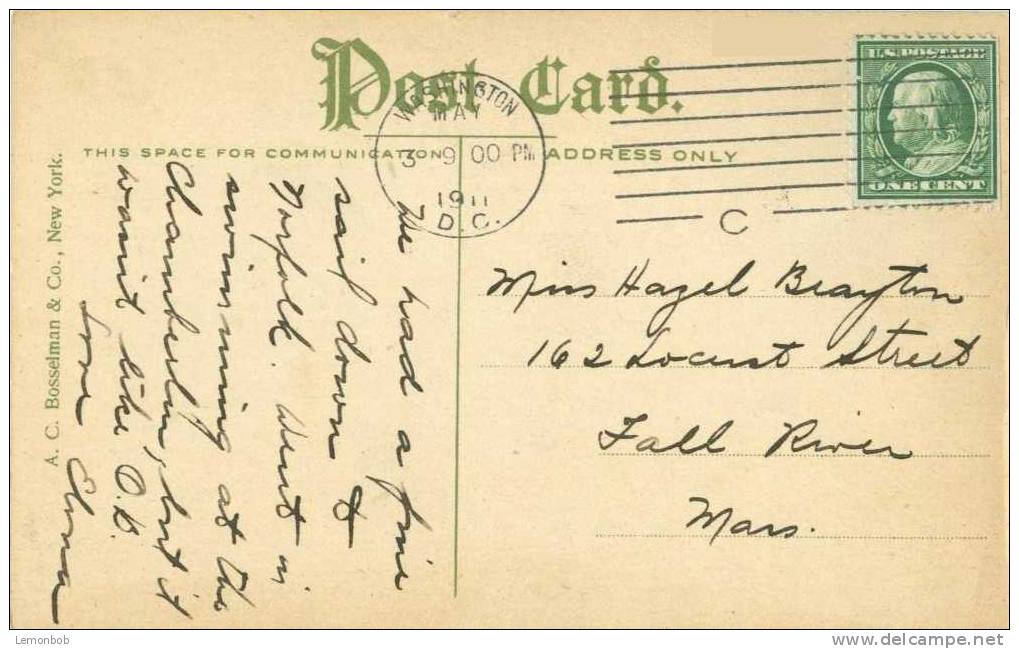 Post Card.
WASHINGTON
MAY
3 9 00 PM
1911
D.C.
C
U.S. POSTAGE
ONE CENT
THIS SPACE FOR COMMUNICATION
ADDRESS ONLY
We had a fine
sail down to
Norfolk. Went in
swimming at the
Chamberlin, but it
wasn't like O.B.
Love Elma
Miss Hazel Brayton
162 Locust Street
Fall River
Mass.
A. C. Bosselman & Co., New York.
Lemonbob
www.delcampe.net